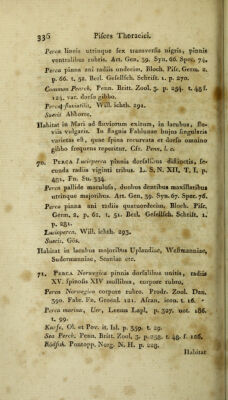 336 Pisces Thoracici.
Perca lineis utrinque sex transversis nigris, pinnis
ventralibus rubris. Art. Gen. 39. Syn. 66. Spec. 74.
Perca pinna ani radiis undecim, Bloch. Pisc. Germ. 2.
p. 66. t. 52. Berl. Gesellsch. Schrift. 1. p. 270.
Common Pearch. Penn. Britt. Zool. 3. p. 254. t. 48 f.
124. var. dorso gibbo.
Perca fluviatilis, Will. ichth. 291.
Suecis Abborre.
Habitat in Mari ad fluviorum exitum, in lacubus, flu-
viis vulgaris. In stagnis Fahlunae hujus singularis
varietas est, quae spina recurvata et dorso omnino
gibbo frequens reperitur. Cfr. Penn. l. c.
70. Perca Lucioperca pinnis dorsalibus distinctis, se-
cunda radiis viginti tribus. L. S. N. XII, T. I, p.
481. Fn. Sv. 334.
Perca pallide maculosa, duobus dentibus maxillaribus
utrinque majoribus. Art. Gen. 39. Syn. 67. Spec. 76.
Perca pinna ani radiis quatuordecim, Bloch. Pisc.
Germ. 2, p. 62. t. 51. Berl. Gesellsch. Schrift. 1.
p. 281.
Lucioperca. Will. ichth. 293.
Suecis. Gös.
Habitat in lacubus majoribus Uplandiae, Westmanniae,
Sudermanniae, Scaniae etc.
71. Perca Norwegica pinnis dorsalibus unitis, radiis
XV. spinosis XIV mollibus, corpore rubro,
Perca Norwegica corpore rubro. Prodr. Zool. Dan.
390. Fabr. Fn. Groenl. 121. Ascan. icon. t. 16.
Perca marina, Uer, Leems Lapl. p. 327. not. 186.
t. 99.
Karfe, Ol. et Pov. it. Isl. p. 359. t. 29.
Sea Perch. Penn. Britt. Zool, 3. p. 258. t. 48. f. 126.
Rödfisk. Pontopp. Norg. N. H. p. 228.
Habitat